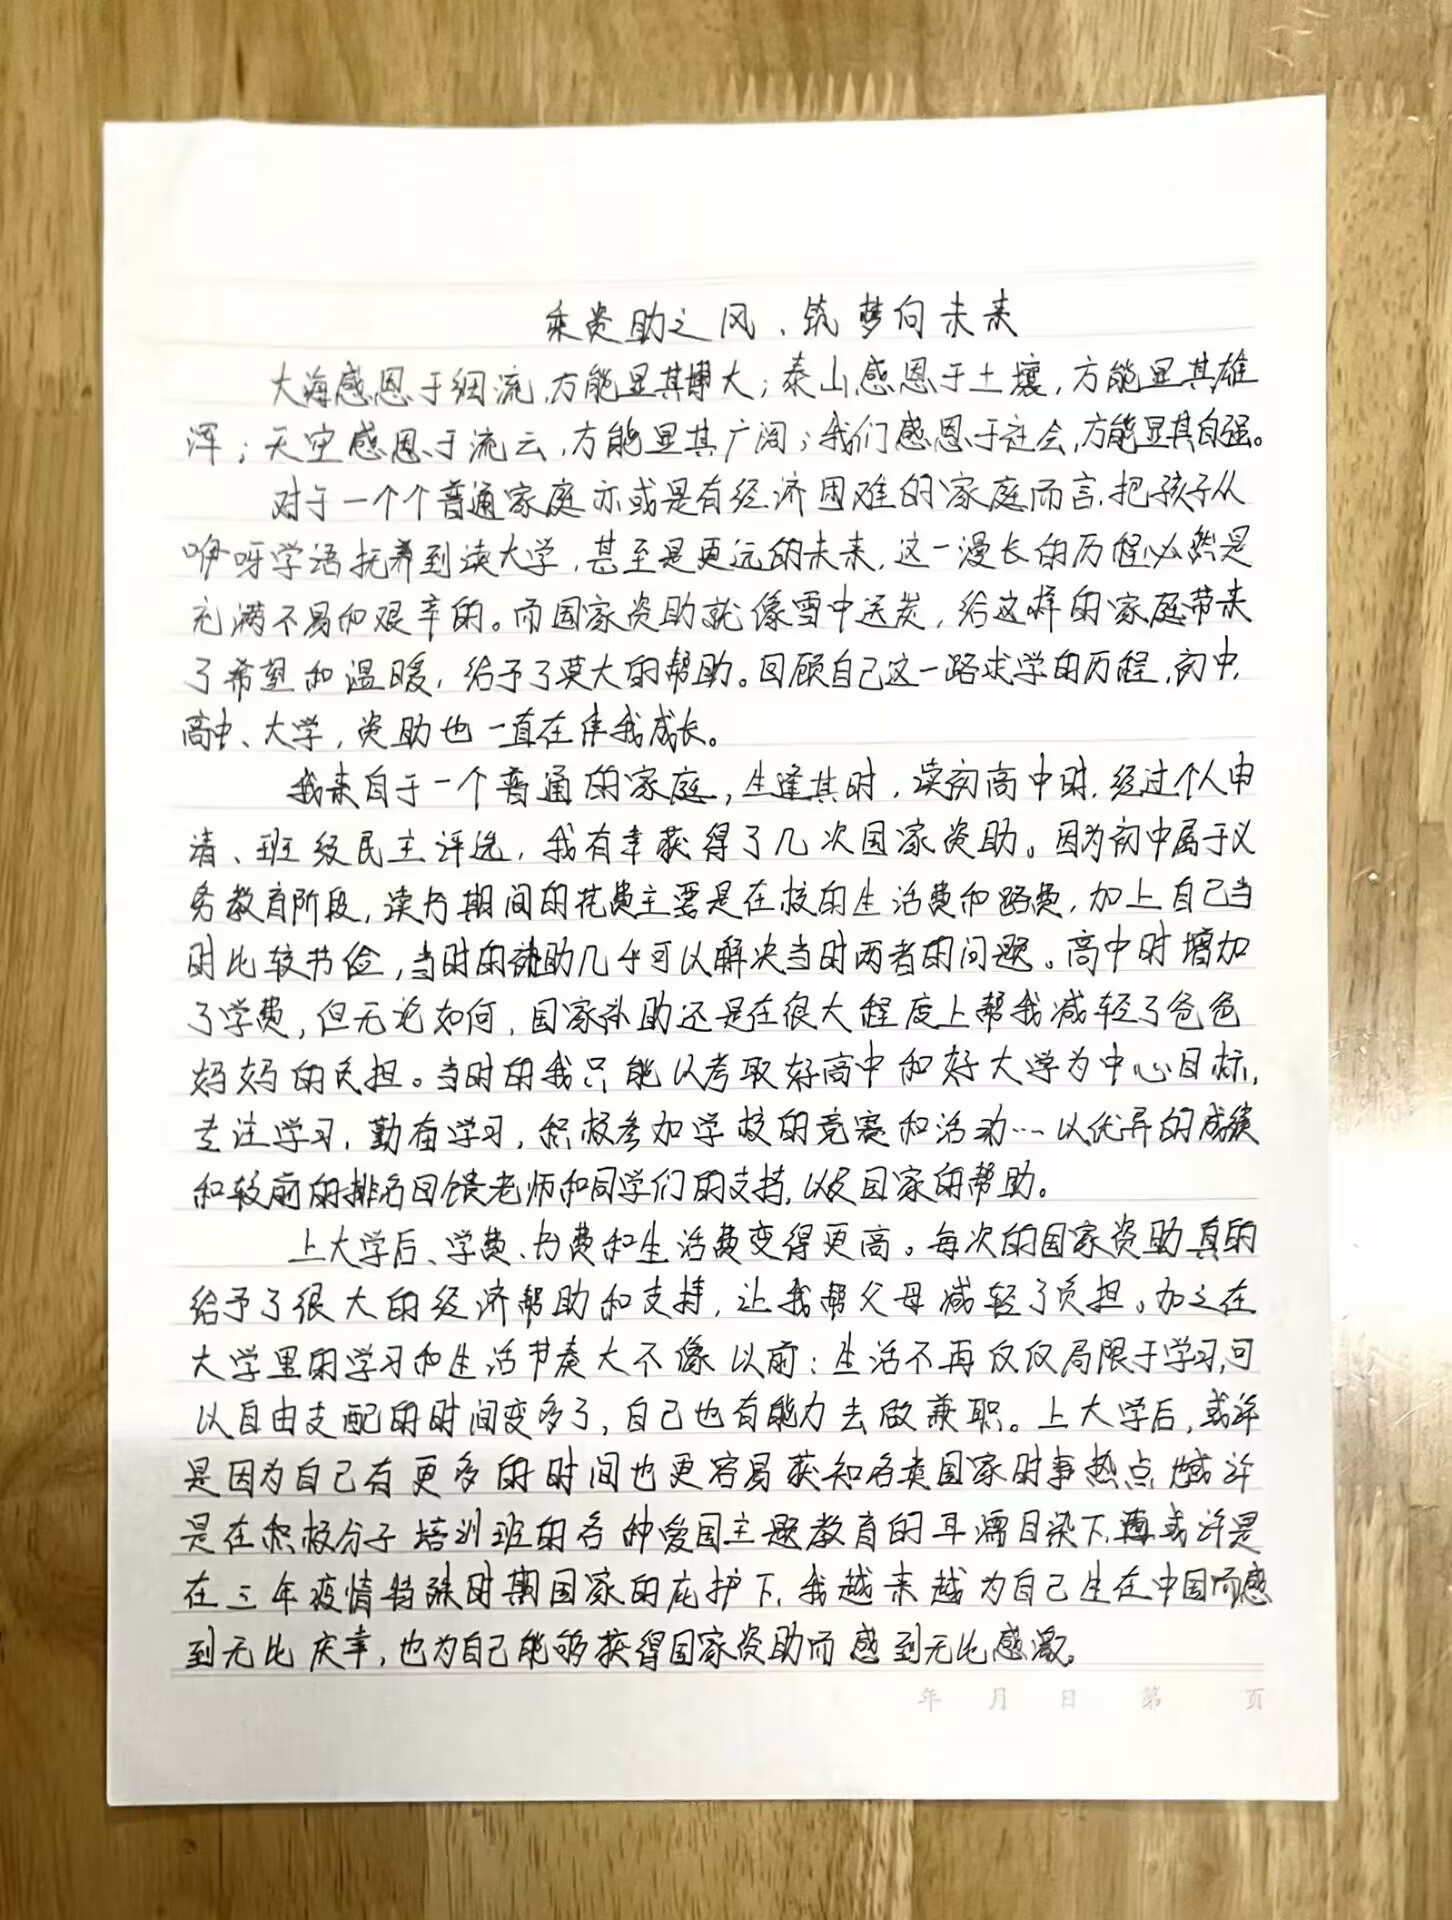 乘资助之风、筑梦向未来
大海感恩于细流,方能显其博大；泰山感恩于土壤,方能显其雄
浑；天空感恩于流云,方能显其广阔；我们感恩于社会,方能显其自强。
对于一个个普通家庭亦或是有经济困难的家庭而言,把孩子从
咿呀学语抚养到读大学,甚至是更远的未来,这一漫长的历程必然是
充满不易和艰辛的。而国家资助就像雪中送炭,给这样的家庭带来
了希望和温暖,给予了莫大的帮助。回顾自己这一路求学的历程,初中、
高中、大学,资助也一直在伴我成长。
我来自于一个普通的家庭,生逢其时,读初高中时,经过个人申
请、班级民主评选,我有幸获得了几次国家资助。因为初中属于义
务教育阶段,读书期间的花费主要是在校的生活费和路费,加上自己当
时比较节俭,当时的补助几乎可以解决当时两者的问题。高中时增加
了学费,但无论如何,国家补助还是在很大程度上帮我减轻了爸爸
妈妈的负担。当时的我只能以考取好高中和好大学为中心目标,
专注学习,勤奋学习,积极参加学校的竞赛和活动…以优异的成绩
和较前的排名回馈老师和同学们的支持,以及国家的帮助。
上大学后、学费、书费和生活费变得更高。每次的国家资助真的
给予了很大的经济帮助和支持,让我帮父母减轻了负担。加之在
大学里的学习和生活节奏大不像以前：生活不再仅仅局限于学习,可
以自由支配的时间变多了,自己也有能力去做兼职。上大学后,或许
是因为自己有更多的时间也更容易获知各类国家时事热点,或许
是在积极分子培训班的各种爱国主题教育的耳濡目染下,或许是
在三年疫情特殊时期国家的庇护下,我越来越为自己生在中国而感
到无比庆幸,也为自己能够获得国家资助而感到无比感激。
年 月 日 第 页